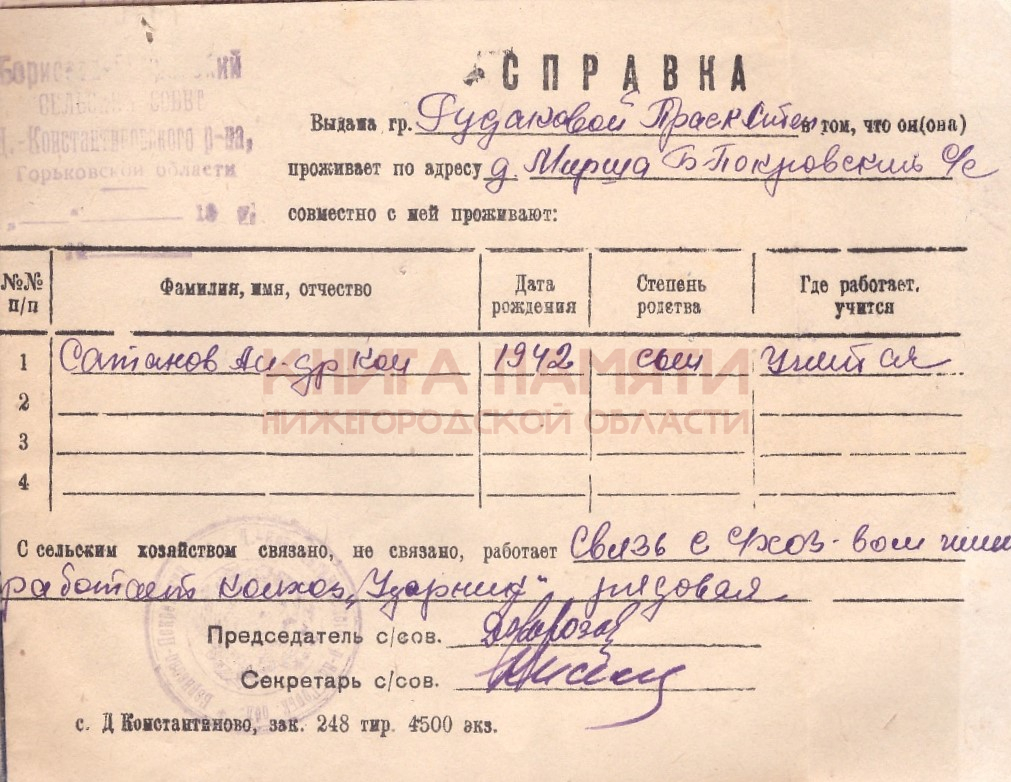 СЕЛЬСКИЙ СОВЕТ
Д.-Константиновского р-на,
Горьковской области
СПРАВКА
Выдана гр. Рудаковой Праск в том, что он(она)
проживает по адресу д. Мирша Б-Покровский с/с
совместно с ней проживают:
№№ п/п
Фамилия, имя, отчество
Дата рождения
Степень родства
Где работает, учится
1 Сатанов Ал-др 1942 сын учится
2
3
4
КНИГА ПАМЯТИ
НИЖЕГОРОДСКОЙ ОБЛАСТИ
С сельским хозяйством связано, не связано, работает Связь с с/хоз-вом
работает колхоз „Ударник" рядовая
Председатель с/сов.
Секретарь с/сов.
с. Д Константиново, зак. 248 тир. 4500 экз.